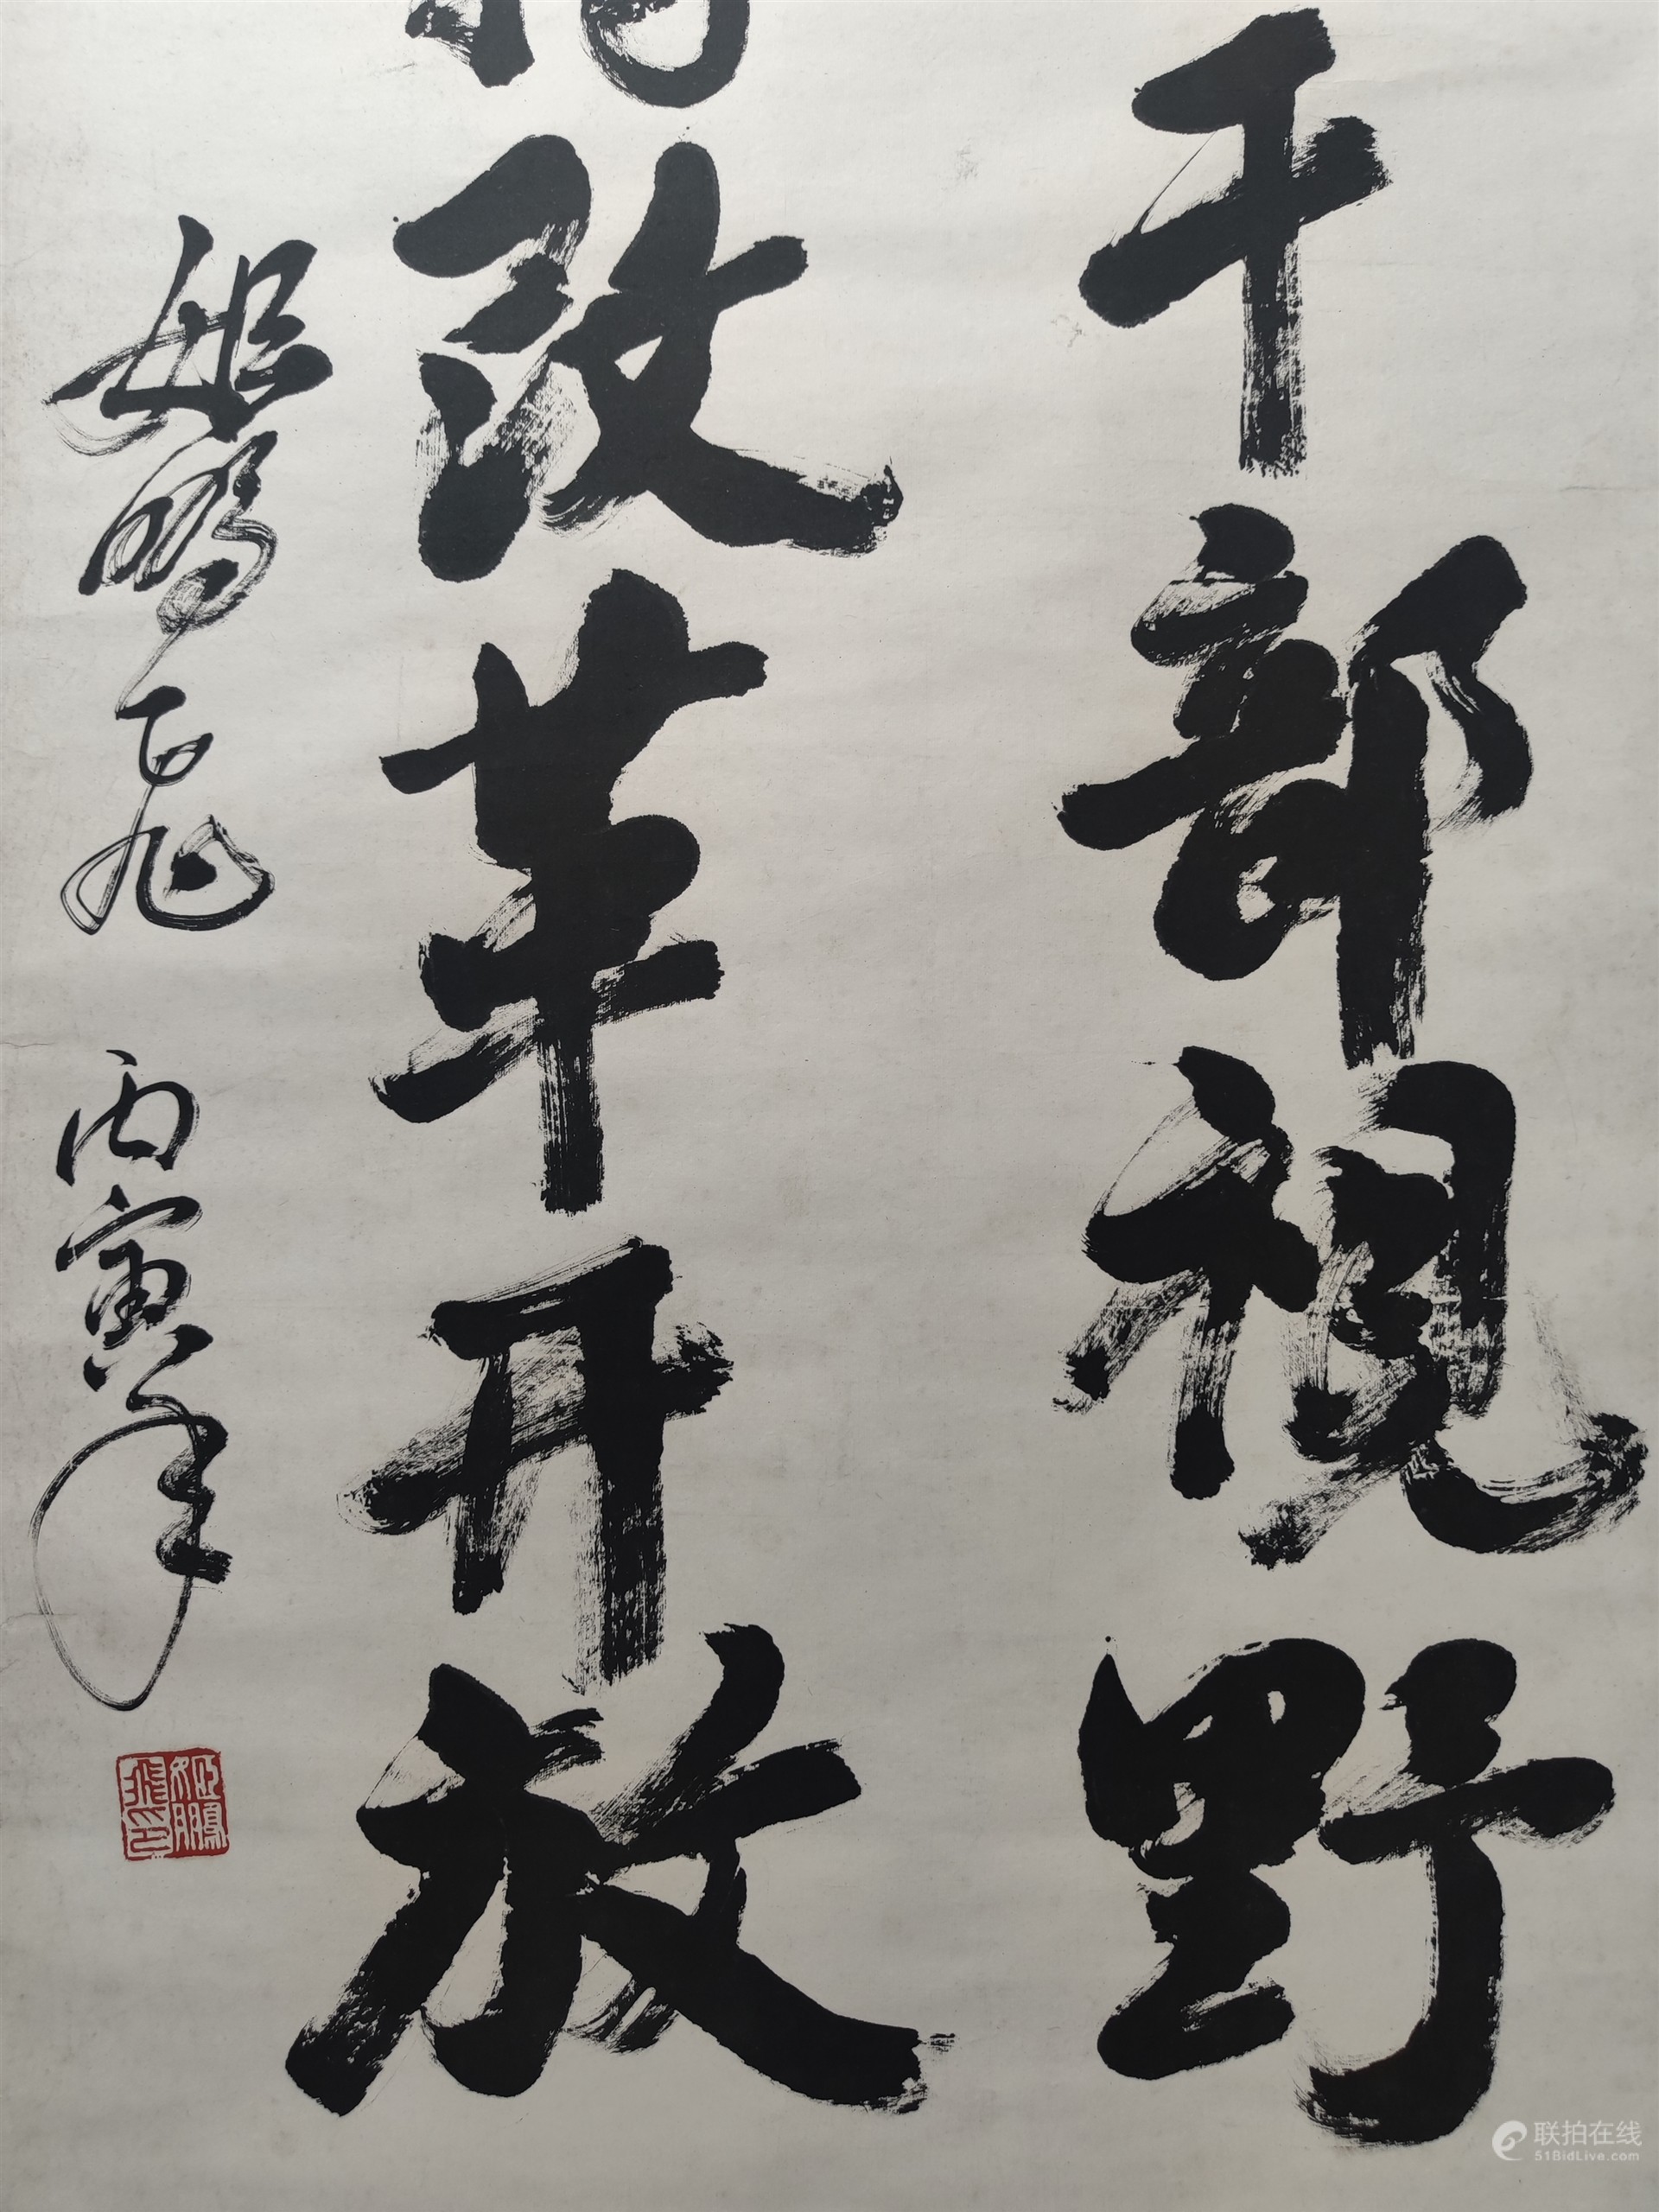 干部视野
改革开放
姬鹏飞 丙寅年
姬鹏飞印
联拍在线
51BidLive.com